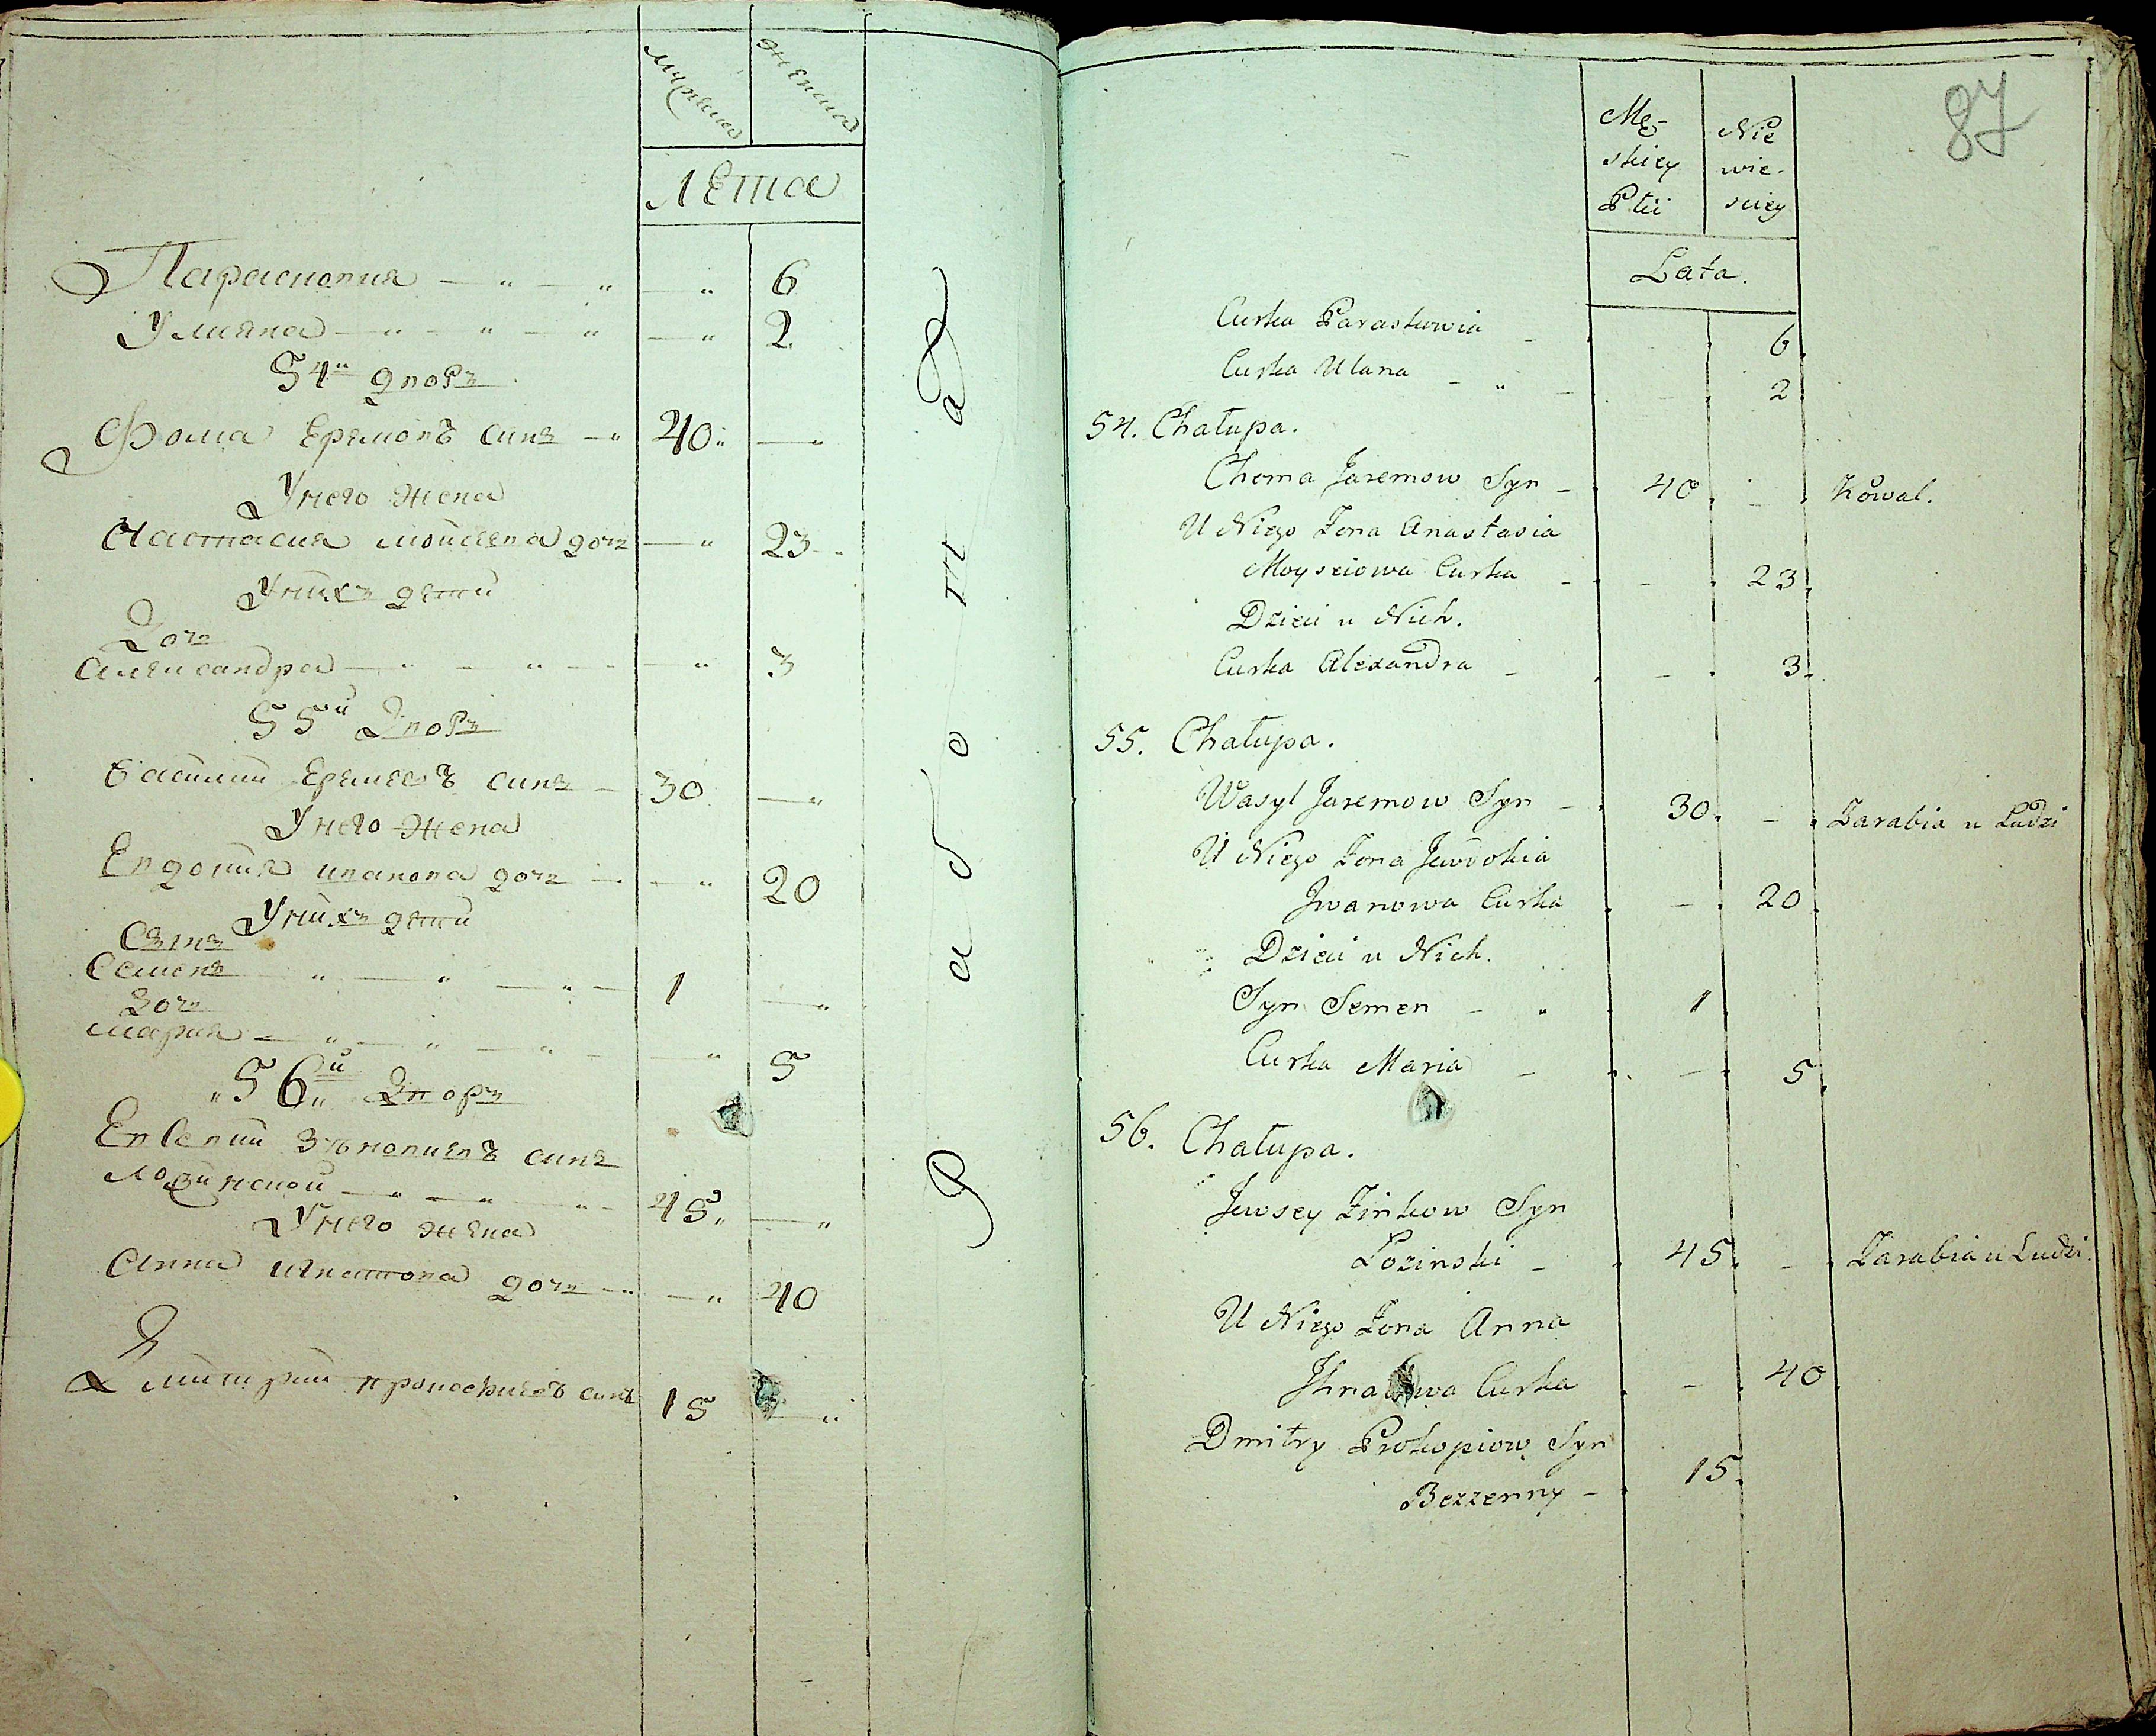 мужеска
женска
Лета
Параскопия — " — " — " 6
Улияна — " — " — " — " 2
54й дворъ
Фома Еремовъ синъ — " 40 — "
У него жена
Настасия Моисеева дочь — " 23
У нихъ дети
Дочь
Александра — " — " — — " 3
55й Дворъ
Василий Еремеевъ синъ — 30 — "
У него жена
Евдокия Иванова дочь — — " 20
У нихъ дети
Сынъ
Семенъ " — " — " — 1 — "
Дочь
Мария — " — " — " — — " 5
56й Дворъ
Евсевий Зѣнковиевъ синъ
Лозинской — " — " " 45 — "
У него жена
Анна Игнатова дочь — " — " 40
Дмитрий Прокофиевъ синъ 15 — "
Работа
87
Mę-
skiey
Płci
Nie
wie-
sciey
Lata.
Curka Paraskowia - 6
Curka Ulana - " - 2
54. Chałupa.
Choma Jaremow Syn - 40. - Kowal.
U Niego Zona Anastasia
Moysziowa Curka - - 23.
Dzieci u Nich.
Curka Alexandra - - 3.
55. Chałupa.
Wasyl Jaremow Syn - 30. - Zarabia u Ludzi
U Niego Zona Jewdokia
Jwanowa Curka - 20.
Dzieci u Nich.
Syn Semen - " 1
Curka Maria - - 5.
56. Chałupa.
Jewsey Zinkow Syn
Lozinski - 45. - Zarabia u Ludzi.
U Niego Zona Anna
Curka - 40
Dmitry Prokopiow Syn
Bezzenny - 15.